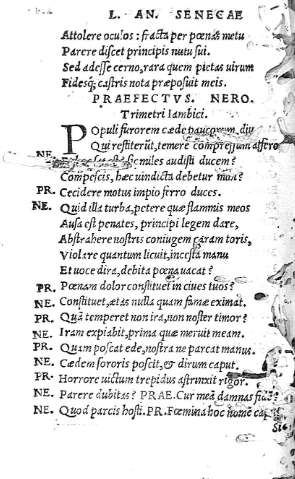 L. AN. SENECAE
Attollere oculos: fracta per pœnas metu
Parere discet principis nutu sui.
Sed adesse cerno, rara quem pietas uirum
Fidesq́; castris nota præposuit meis.
PRAEFECTVS. NERO.
Trimetri Iambici.
Populi furorem cæde paucorum, diu
Qui restiterūt, temere compressum affero
NE. sic miles audisti ducem?
Compescis, hæc uindicta debetur mihi?
PR. Cecidere motus impio ferro duces.
NE. Quid illa turba, petere quæ flammis meos
Ausa est penates, principi legem dare,
Abstrahere nostris coniugem caram toris,
Violare quantum licuit, incesta manu
Et uoce dira, debita pœna uacat?
PR. Pœnam dolor constituet in ciues tuos?
NE. Constituet, ætas nulla quam famæ eximat.
PR. Quā temperet non ira, non noster timor?
NE. Iram expiabit, prima quæ meruit meam.
PR. Quam poscat ede, nostra ne parcat manus.
NE. Cædem sororis poscit, & dirum caput.
PR. Horrore uictum trepidus astrinxit rigor.
NE. Parere dubitas? PRAE. Cur meā damnas fidē?
NE. Quod parcis hosti. PR. Fœmina hoc nomē
Sic